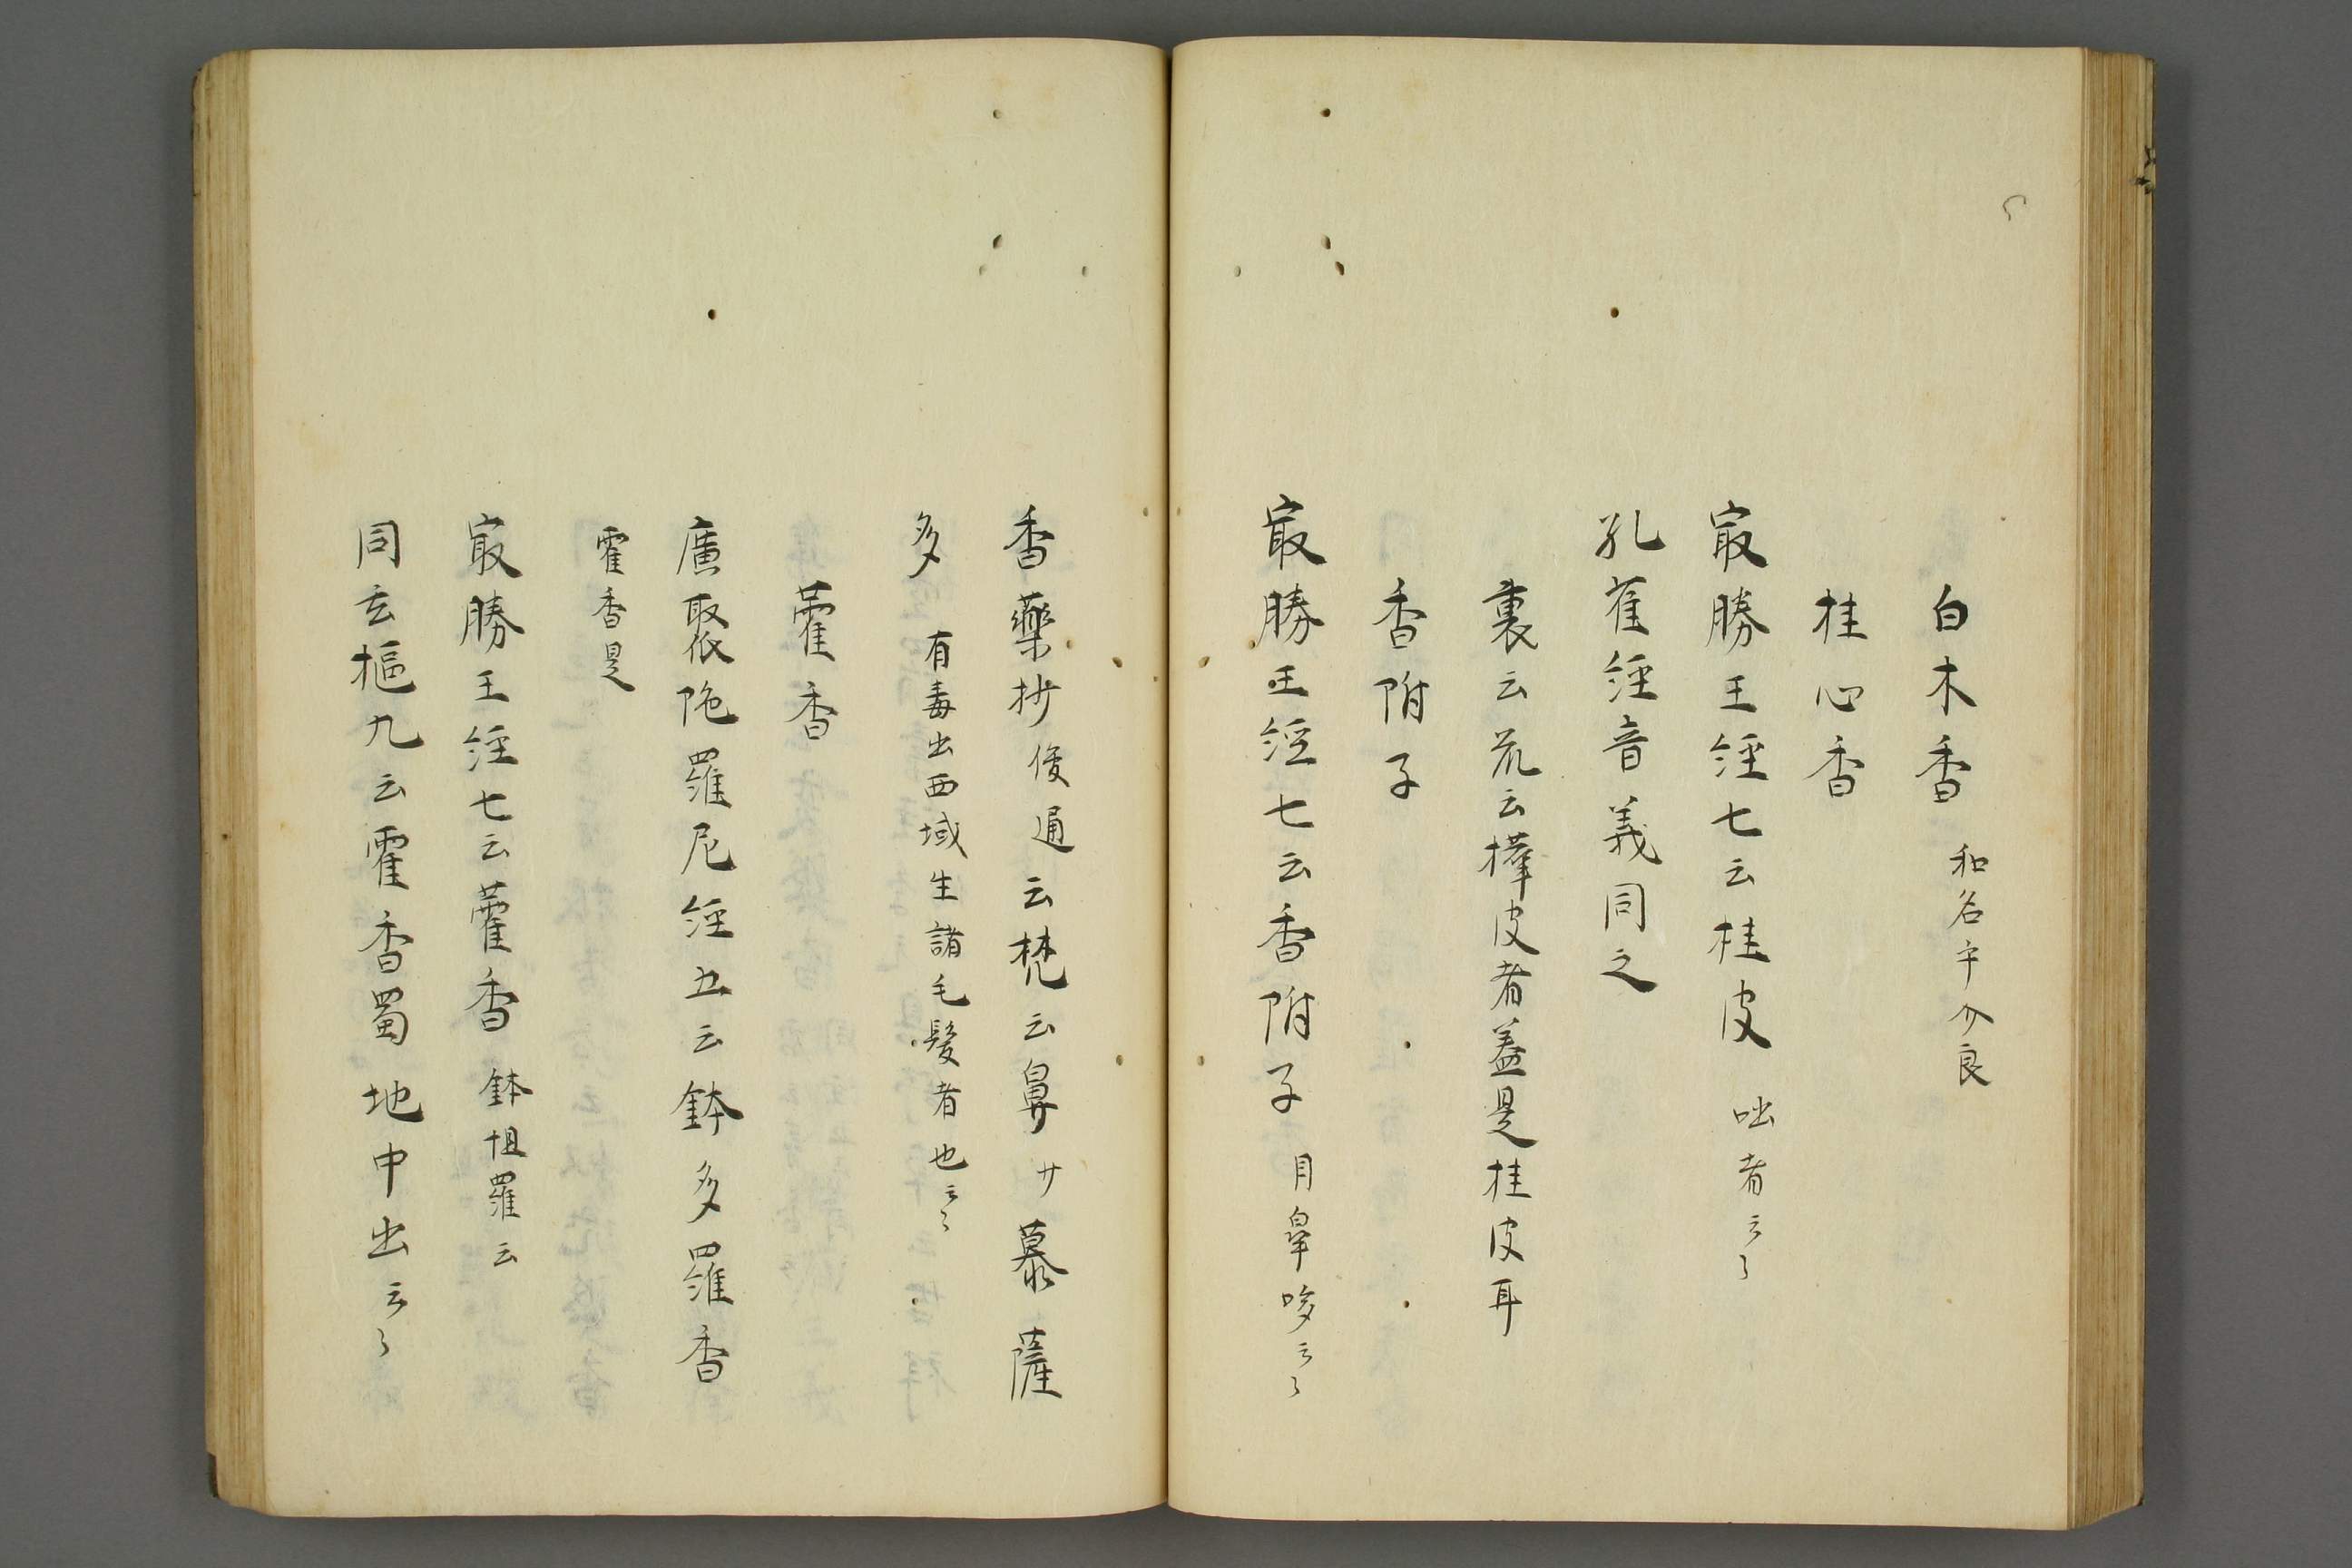 白木香 和名宇介良
桂心香
㝡勝王經七云桂皮 咄者云々
孔雀經音義同之
裏云荒云樺皮者蓋是桂皮耳
香附子
㝡勝王經七云香附子 目皐哆云々
香藥抄 俊通云梵云鼻廿慕薩
多 有毒出西域生諸毛髮者也云々
藿香
廣聚陁羅尼經五云鉢多羅香
霍香是
㝡勝王經七云藿香 鉢怛羅云
同玄樞九云霍香蜀地中出云々